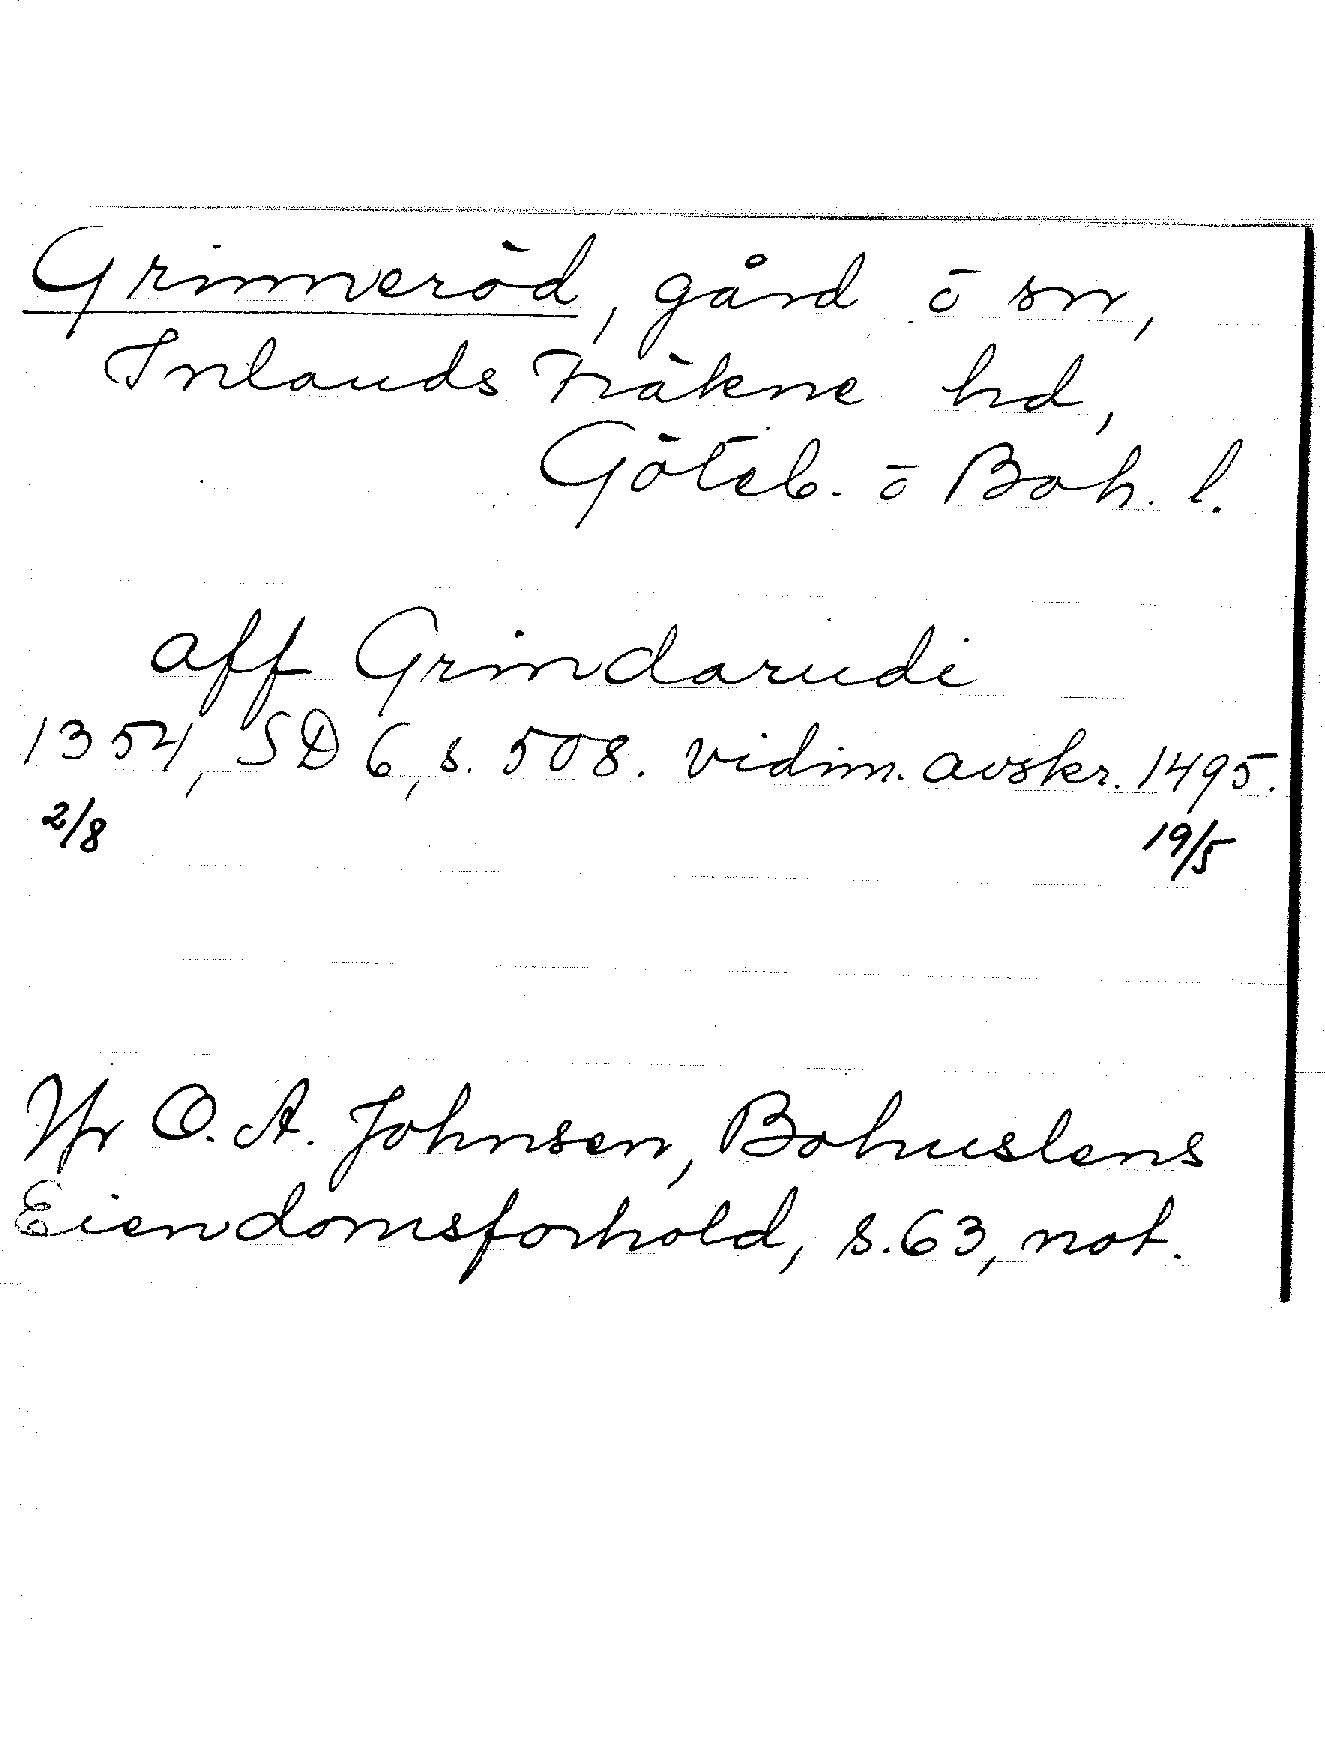 Grinneröd, gård o sn,
Inlands Fräkne hd,
Göteb. o Boh. l.
aff Grindarudi
1354, SD 6, s. 508. vidim. avskr. 1495.
2/8 19/5
Jfr O. A. Johnsen, Bohuslens
Eiendomsforhold, s. 63, not.